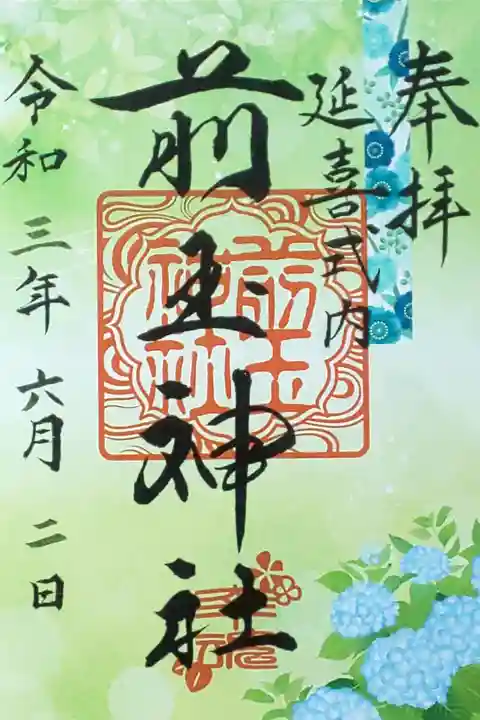 奉拝
延喜式内
前玉神社
前玉神社
令和三年六月二日